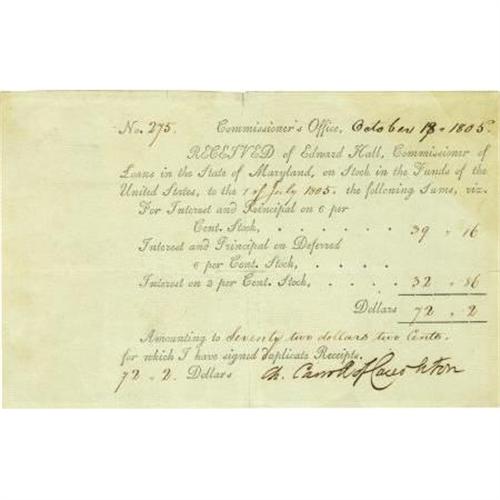 No. 275. Commissioner's Office, October 18 = 1805.
RECEIVED of Edward Hall, Commissioner of
Loans in the State of Maryland, on Stock in the Funds of the
United States, to the 1 of July 1805. the following Sums, viz.
For Interest and Principal on 6 per
Cent. Stock, . . . . . . 39 = 16
Interest and Principal on Deferred
6 per Cent. Stock, . . . .
Interest on 3 per Cent. Stock, . . . . 32 = 86
Dollars 72 = 2
Amounting to Seventy two dollars two Cents.
for which I have signed duplicate Receipts.
72 = 2. Dollars Ch. Carroll of Carrollton